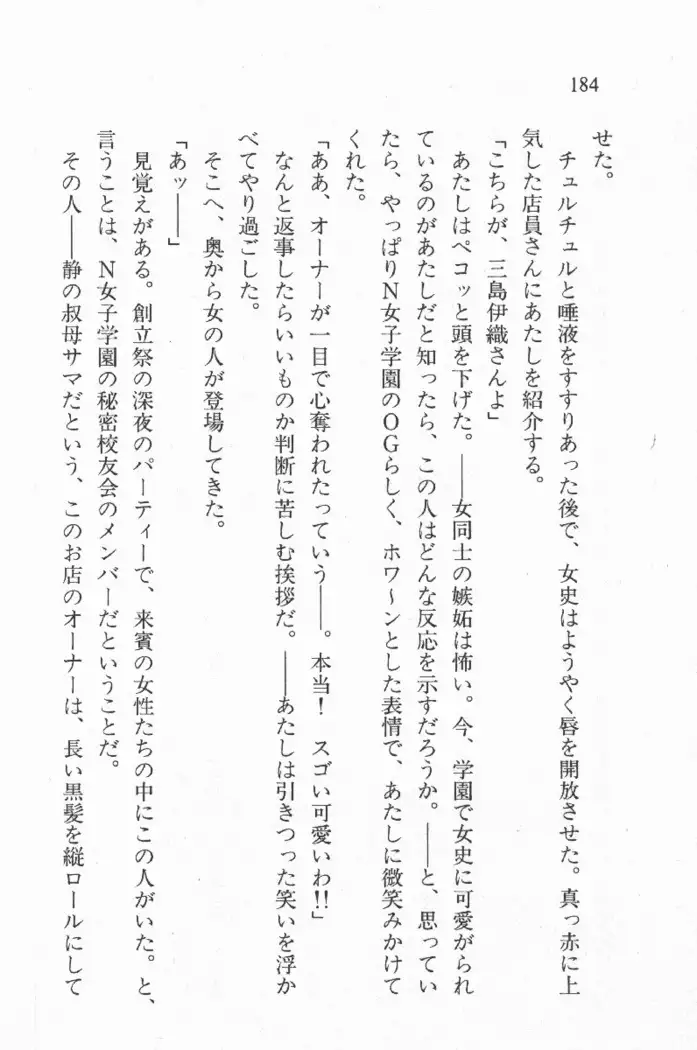 184
せた。
チュルチュルと唾液をすすりあった後で、女史はようやく唇を開放させた。真っ赤に上
気した店員さんにあたしを紹介する。
「こちらが、三島伊織さんよ」
あたしはペコッと頭を下げた。――女同士の嫉妬は怖い。今、学園で女史に可愛がられ
ているのがあたしだと知ったら、この人はどんな反応を示すだろうか。――と、思ってい
たら、やっぱりN女子学園のOGらしく、ホワ〜ンとした表情で、あたしに微笑みかけて
くれた。
「ああ、オーナーが一目で心奪われたっていう――。本当！　スゴい可愛いわ!!」
なんと返事したらいいものか判断に苦しむ挨拶だ。――あたしは引きつった笑いを浮か
べてやり過ごした。
そこへ、奥から女の人が登場してきた。
「あッ――」
見覚えがある。創立祭の深夜のパーティーで、来賓の女性たちの中にこの人がいた。と、
言うことは、N女子学園の秘密校友会のメンバーだということだ。
その人――静の叔母サマだという、このお店のオーナーは、長い黒髪を縦ロールにして